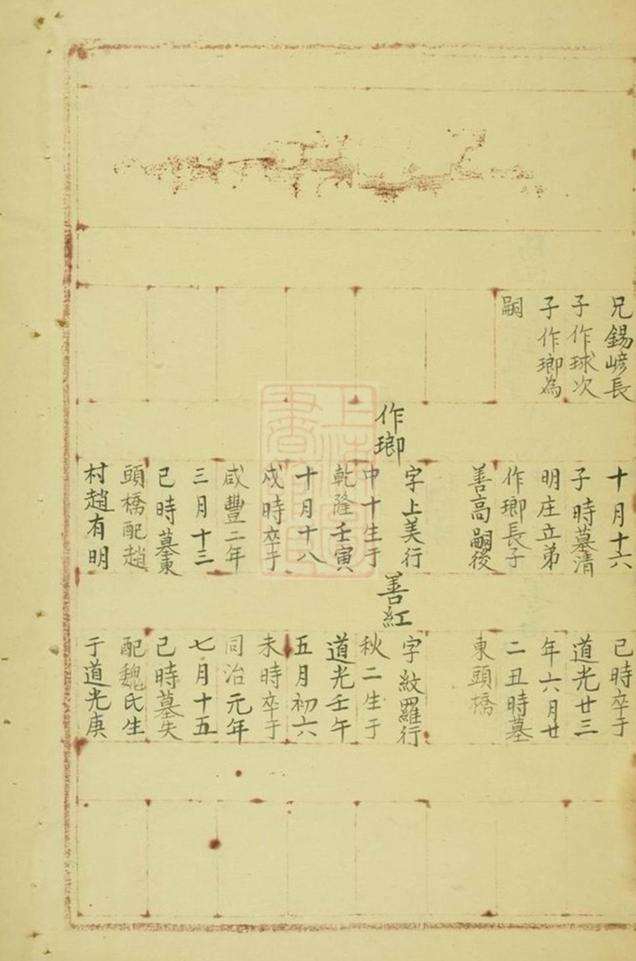 兄錫嵾長
子作球次
子作瑯為
嗣
十月十六
子時墓清
明庄立弟
作瑯長子
善高嗣後
作瑯
字上美行
中十生于
乾隆壬寅
十月十八
戍時卒于
咸豐二年
三月十三
巳時墓東
頭橋配趙
村趙有明
己時卒于
道光廿三
年六月廿
二丑時墓
東頭橋
善紅
字紋羅行
秋二生于
道光壬午
五月初六
未時卒于
同治元年
七月十五
己時墓失
配魏氏生
于道光庚